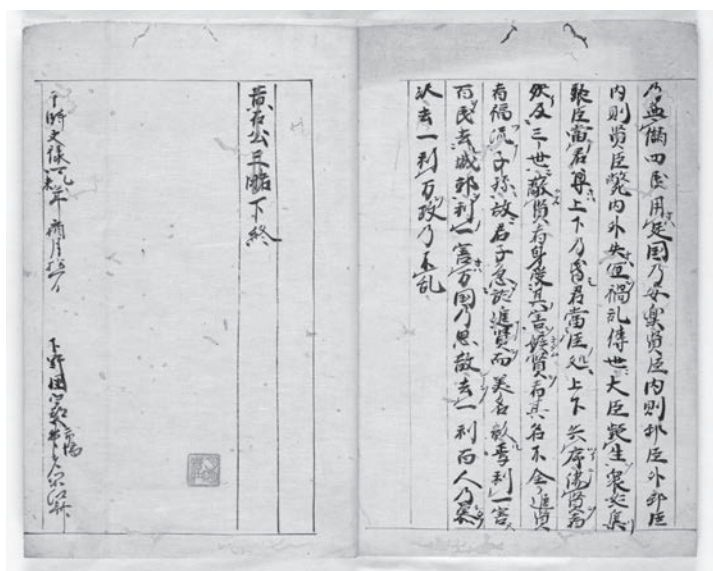 乃無儲四民用足国乃安楽賢臣内則邪臣外邪臣
内則賢臣斃内外失宜禍乱傳世大臣疑主衆姦集
聚臣當君尊上下乃昏君當臣処上下失序傷賢者
殃及三世蔽賢者身受其害嫉賢者其名不全進賢
者福流子孫故君子急於進賢而美名彰焉利一害
百民去城郭利一害万国乃思散去一利百人乃慕
沢去一利万政乃不乱
黄石公三略下終
于時文禄 年 月 下野国